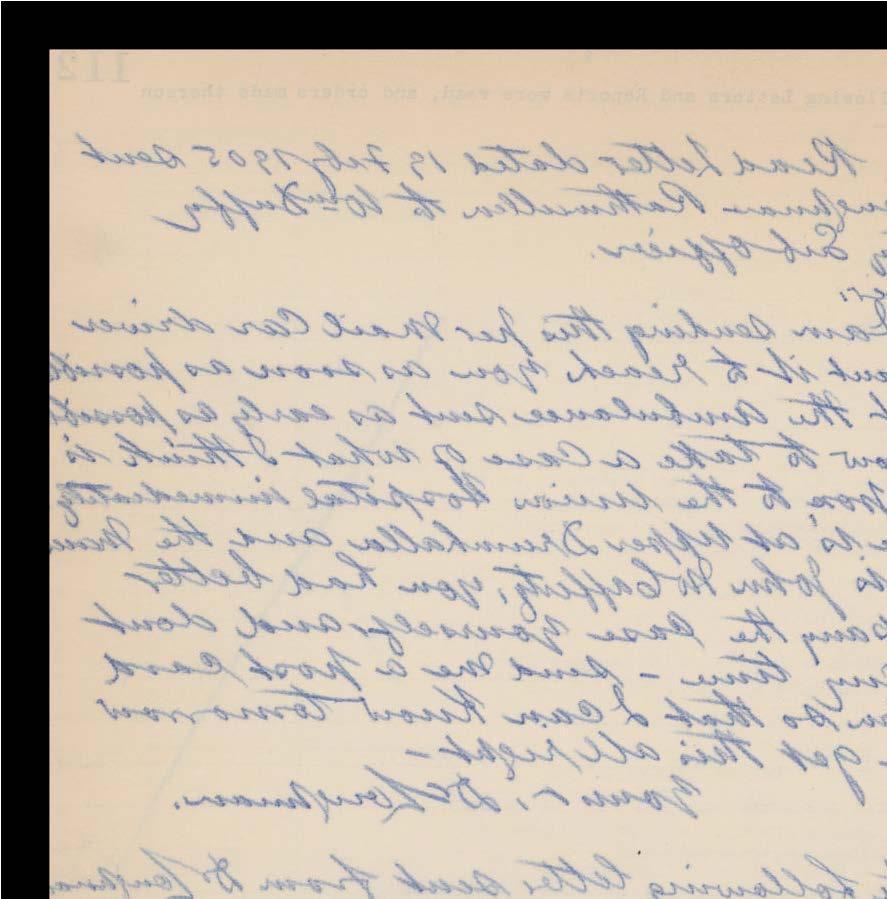 112
llowing Letters and Reports were read, and orders made thereon
Read Letter dated 19 Feby 1905 sent
ughman Rathmullen to Wm Duffy
Sub Officer.
I am sending this per Mail Car driver
ant it to reach you as soon as possib
t the ambulance sent as early as possib
ow to take a case of what I think is
pox to the Union Hospital immediately
is at Upper Drumhalla and the man
is John McCafferty, you had better
pany the case yourself and dont
ny time - send me a post card
so that I can know tomorrow
get this all right -
Yours, Dr Loughman.
following letter sent from Dr Loughma